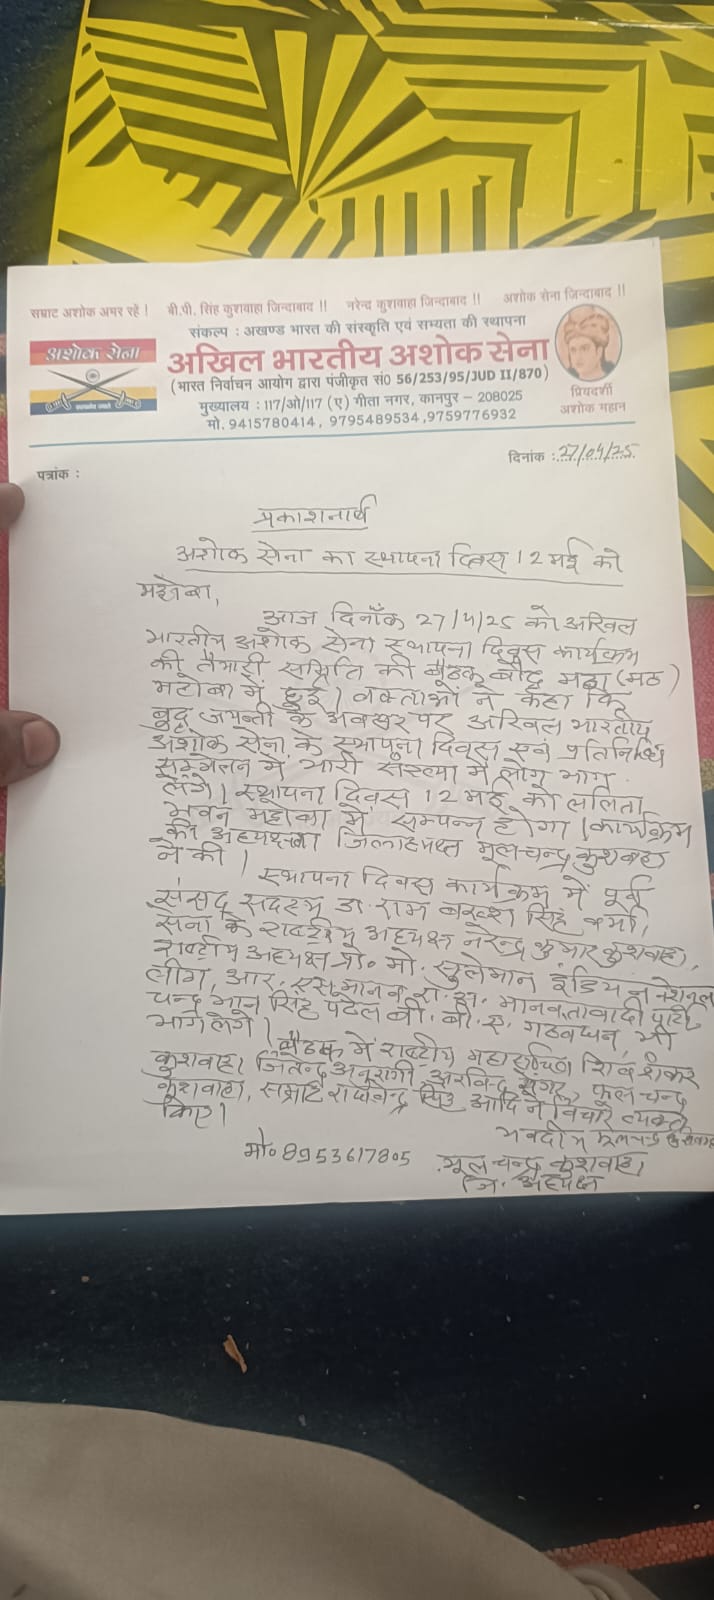 सम्राट अशोक अमर रहें ! बी.पी. सिंह कुशवाहा जिन्दाबाद !! नरेन्द्र कुशवाहा जिन्दाबाद !! अशोक सेना जिन्दाबाद !!
संकल्प : अखण्ड भारत की संस्कृति एवं सभ्यता की स्थापना
अशोक सेना
अखिल भारतीय अशोक सेना
(भारत निर्वाचन आयोग द्वारा पंजीकृत सं0 56/253/95/JUD II/870)
मुख्यालय : 117/ओ/117 (ए) गीता नगर, कानपुर – 208025
मो. 9415780414, 9795489534,9759776932
प्रियदर्शी
अशोक महान
पत्रांक :
दिनांक : 27/04/25
प्रकाशनार्थ
अशोक सेना का स्थापना दिवस 12 मई को
महोबा,
आज दिनाँक 27/4/25 को अखिल
भारतीय अशोक सेना स्थापना दिवस कार्यक्रम
की तैयारी समिति की बैठक बौद्ध मठ (मठ)
महोबा में हुई। वक्ताओं ने कहा कि
बुद्ध जयन्ती के अवसर पर अखिल भारतीय
अशोक सेना के स्थापना दिवस एवं प्रतिनिधि
सम्मेलन में भारी संख्या में लोग भाग
लेंगे। स्थापना दिवस 12 मई को ललिता
भवन महोबा में सम्पन्न होगा। कार्यक्रम
की अध्यक्षता जिलाध्यक्ष मूलचन्द्र कुशवाहा
ने की।
स्थापना दिवस कार्यक्रम में पूर्व
संसद सदस्य डा. राम बख्श सिंह वर्मा,
सेना के राष्ट्रीय अध्यक्ष नरेन्द्र कुमार कुशवाहा,
राष्ट्रीय अध्यक्ष प्रो॰ मो. सुलेमान इंडियन नेशनल
लीग, आर. एस. मानव रा. अ. मानवतावादी पार्टी
चन्द्र भान सिंह पटेल बी. बी. ए. गठबंधन, भी
भाग लेंगे।
बैठक में राष्ट्रीय महासचिव शिव शंकर
कुशवाहा, जितेन्द्र अनुरागी, अरविन्द, फूल चन्द्र
कुशवाहा, सम्राट राघवेन्द्र सिंह आदि ने विचार व्यक्त
किए।
भवदीय मूलचन्द्र कुशवाहा
मो॰ 8953617805 मूल चन्द्र कुशवाहा
जि. अध्यक्ष